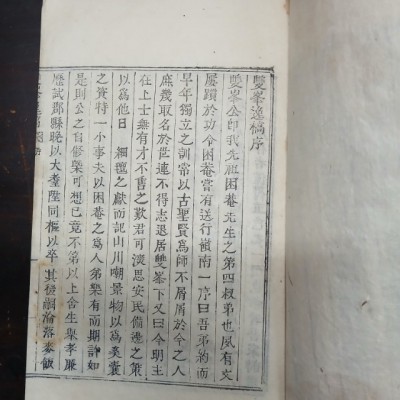 雙峯遺稿序
雙峯公卽我先祖困菴先生之第四叔弟也夙有文
屢躓於功令困菴嘗有送行嶺南一序曰吾弟約而
早年獨立之訓常以古聖賢爲師不屑屑於今之人
庶幾取名於世連不得志退居雙峯下又曰今明主
在上士無有才不售之歎君可淡思安民備邊之策
以爲他日細氊之獻而記山川嘲景物以爲奚囊
之資特一小事夫以困菴之爲人弟槩有而期許如
是則公之自修槩可想已竟不第以上舍生舉孝廉
歷試郡縣晚以大耋陞同樞以卒其發詞淪落麥飯